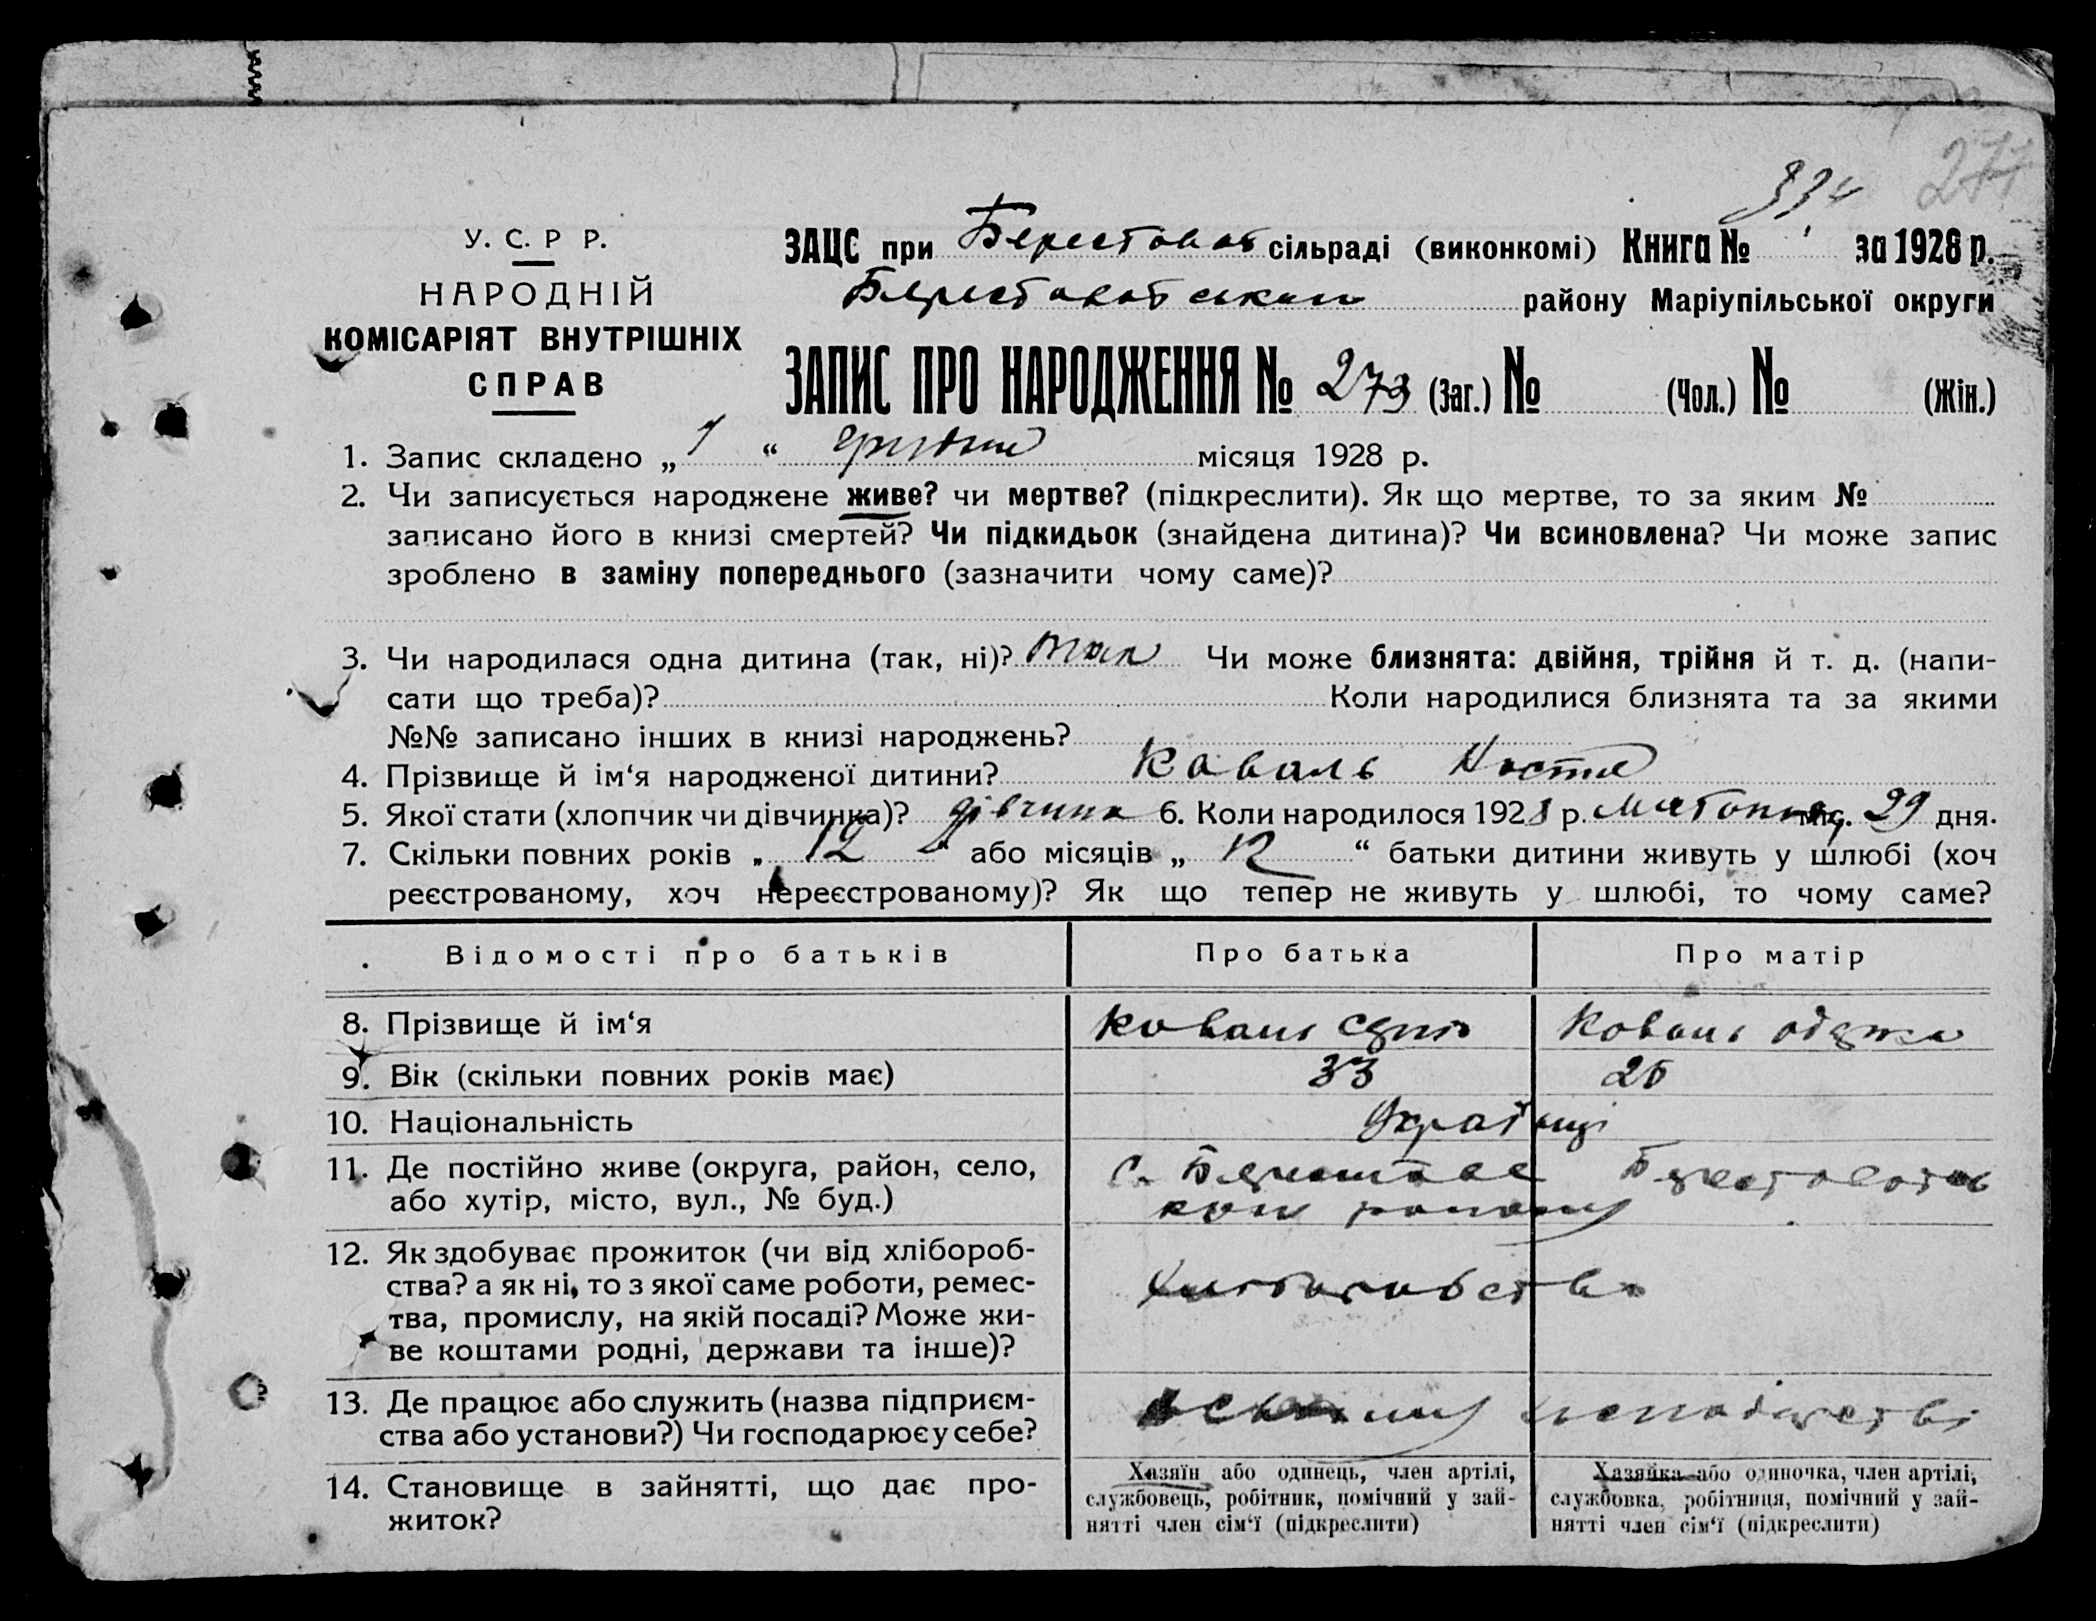 277
334
У. С. Р Р.
НАРОДНІЙ
КОМІСАРІЯТ ВНУТРІШНІХ
СПРАВ
ЗАЦС при сільраді (виконкомі) Книга № за 1928 р.
району Маріупільської округи
ЗАПИС ПРО НАРОДЖЕННЯ № 273 (Заг.) № (Чол.) № (Жін.)
1. Запис складено „ 1 “ грудня місяця 1928 р.
2. Чи записується народжене живе? чи мертве? (підкреслити). Як що мертве, то за яким №
записано його в книзі смертей? Чи підкидьок (знайдена дитина)? Чи всиновлена? Чи може запис
зроблено в заміну попереднього (зазначити чому саме)?
3. Чи народилася одна дитина (так, ні)? так Чи може близнята: двійня, трійня й т. д. (напи-
сати що треба)? Коли народилися близнята та за якими
№№ записано інших в книзі народжень?
4. Прізвище й ім‘я народженої дитини? Коваль Настя
5. Якої статі (хлопчик чи дівчинка)? дівчина 6. Коли народилося 1928 р. міс. 29 дня.
7. Скільки повних років „ 12 “ або місяців „ “ батьки дитини живуть у шлюбі (хоч
реєстрованому, хоч нереєстрованому)? Як що тепер не живуть у шлюбі, то чому саме?
Відомості про батьків Про батька Про матір
8. Прізвище й ім‘я Коваль Коваль
9. Вік (скільки повних років має) 33
10. Національність Українці
11. Де постійно живе (округа, район, село, с.
або хутір, місто, вул., № буд.) району
12. Як здобуває прожиток (чи від хлібороб-
ства? а як ні, то з якої саме роботи, ремес-
тва, промислу, на якій посаді? Може жи-
ве коштами родні, держави та інше)?
13. Де працює або служить (назва підприєм-
ства або установи?) Чи господарює у себе?
14. Становище в зайнятті, що дає про-
житок?
Хазяїн або одинець, член артілі,
службовець, робітник, помічний у зай-
нятті член сім‘ї (підкреслити)
Хазяйка або одиночка, член артілі,
службовка, робітниця, помічний у зай-
нятті член сім‘ї (підкреслити)